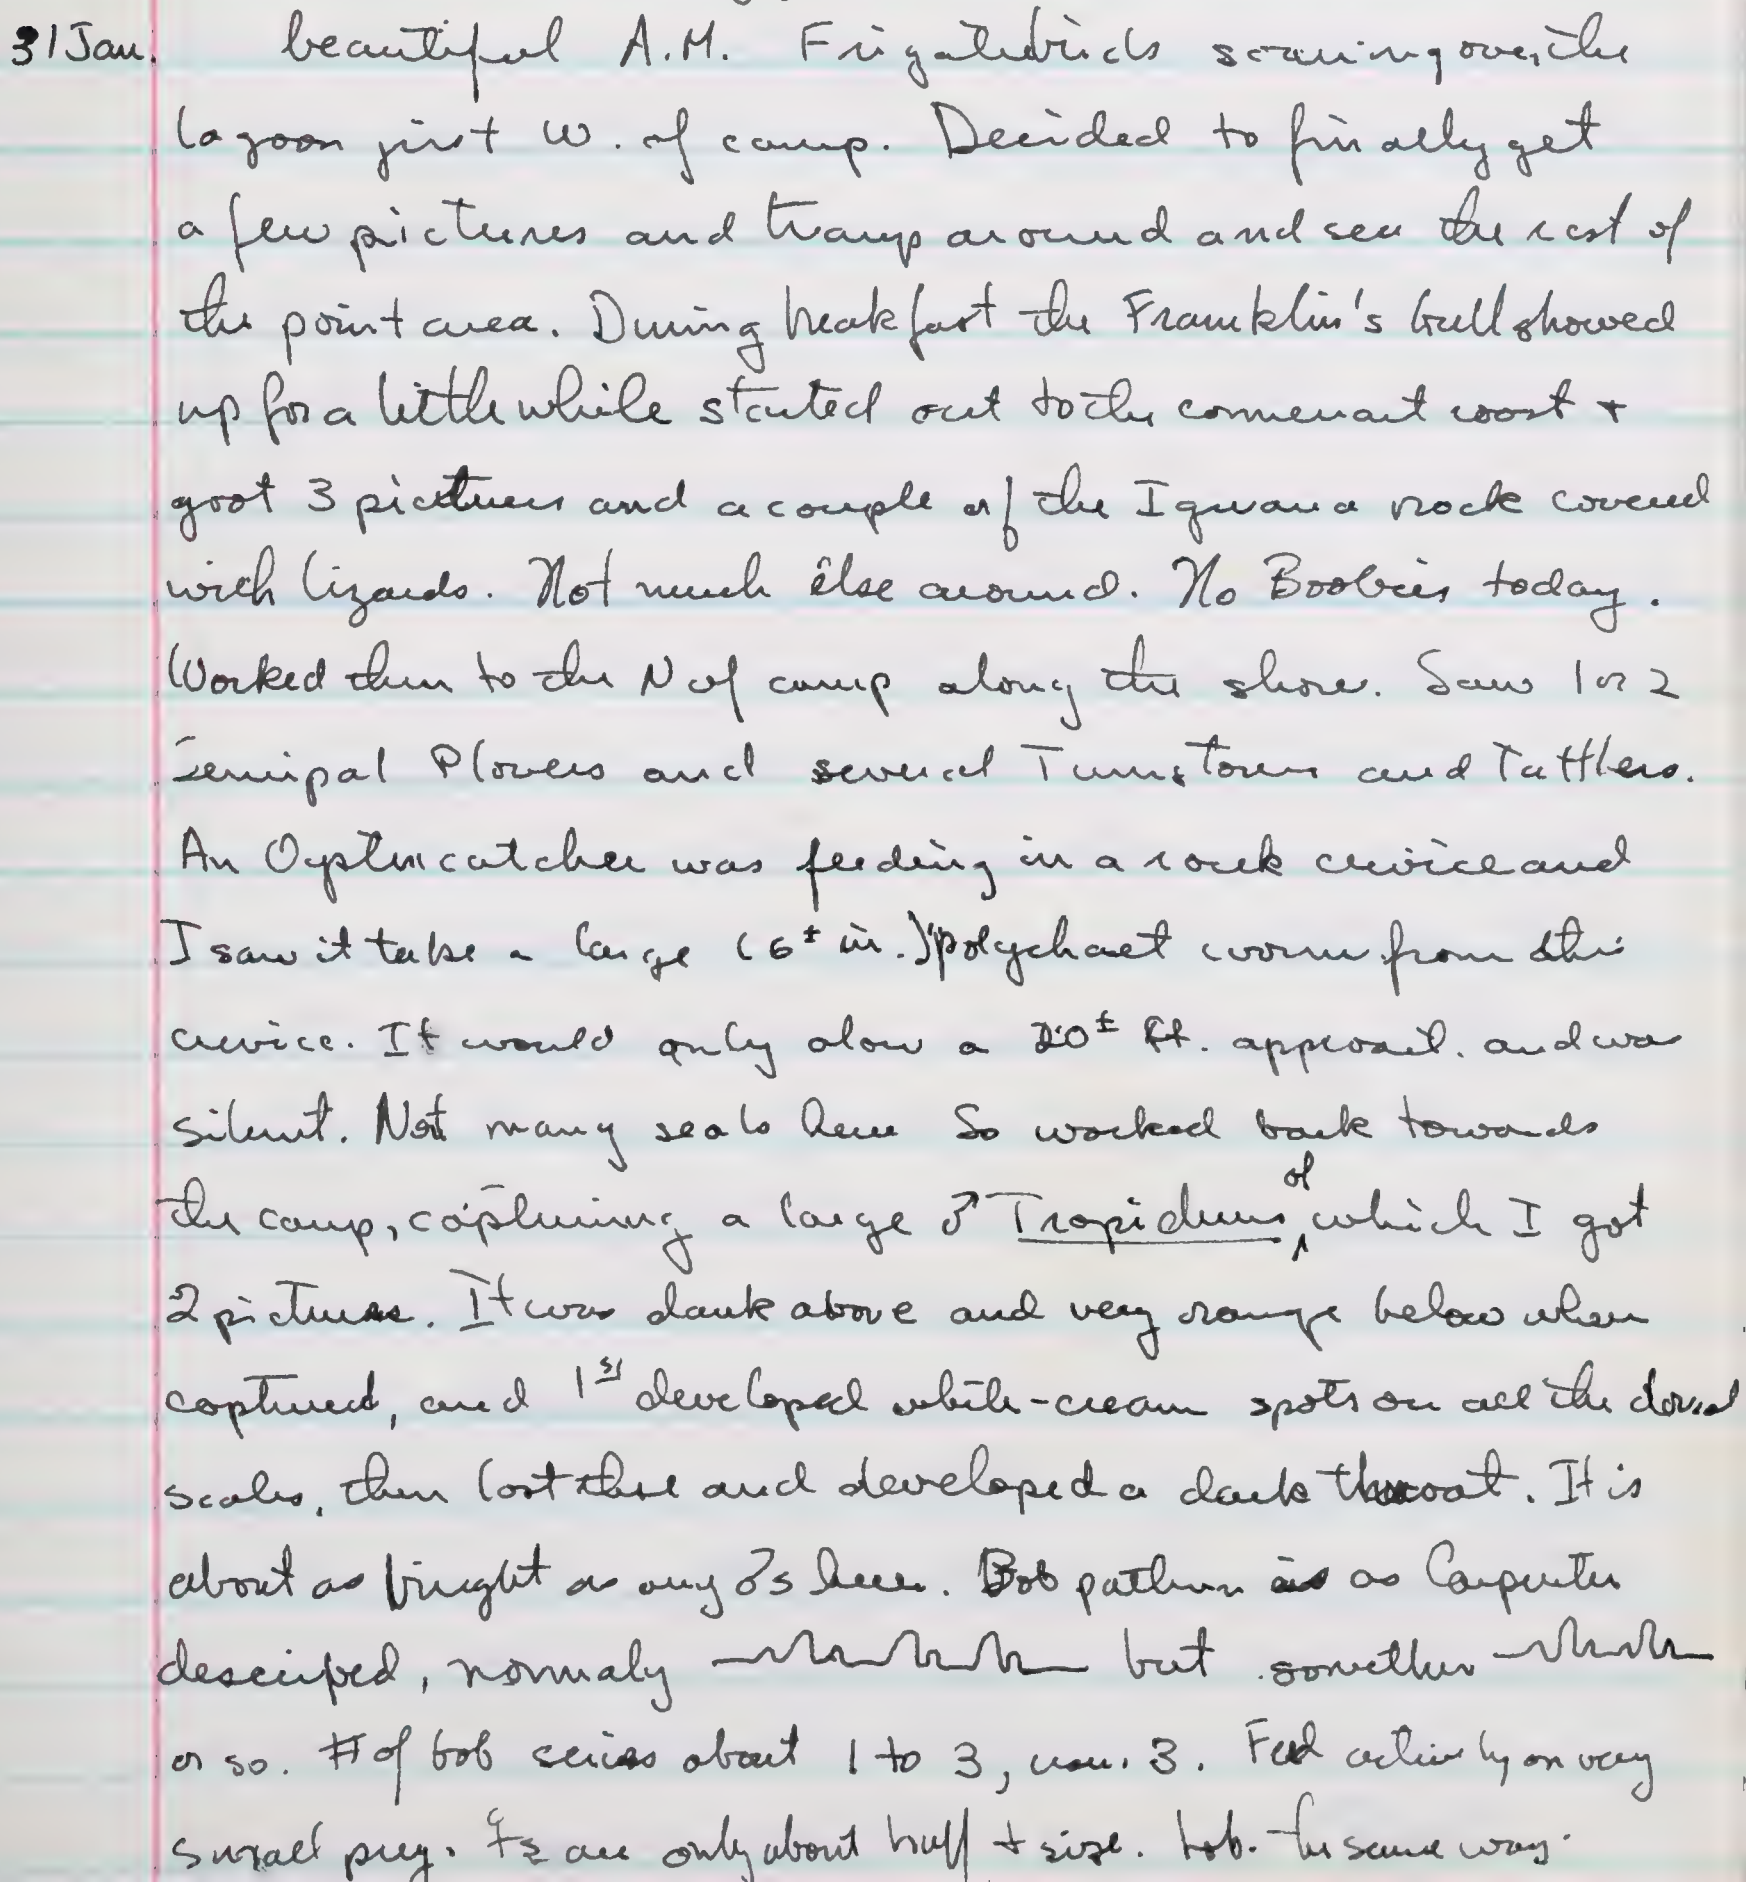 31 Jan. beautiful A.M. Frigatebirds soaring over the
lagoon just W. of camp. Decided to finally get
a few pictures and tramp around and see the rest of
the point area. During breakfast the Franklin's Gull showed
up for a little while started out to the cormorant roost +
goot 3 pictures and a couple of the Iguana rock covered
with lizards. Not much else around. No Boobies today.
Worked then to the N of camp along the shore. Saw 1 or 2
Semipal Plovers and several Turnstones and Tattlers.
An Oystercatcher was feeding in a rock crevice and
I saw it take a large (6± in.) polychaet worm from the
crevice. It would only alow a 20± ft. approach. and was
silent. Not many seals here So worked back towards
the camp, capturing a large ♂ Tropidurus, of which I got
2 pictures. It was dark above and very orange below when
captured, and 1st developed white-cream spots on all the dorsal
scales, then lost these and developed a dark throat. It is
about as bright as any ♂s here. Bob pattern is as Carpenter
described, normaly but
or so. # of bob series about 1 to 3, usu. 3. Feed actively on very
small prey. ♀s are only about half + size. bob. the same way.